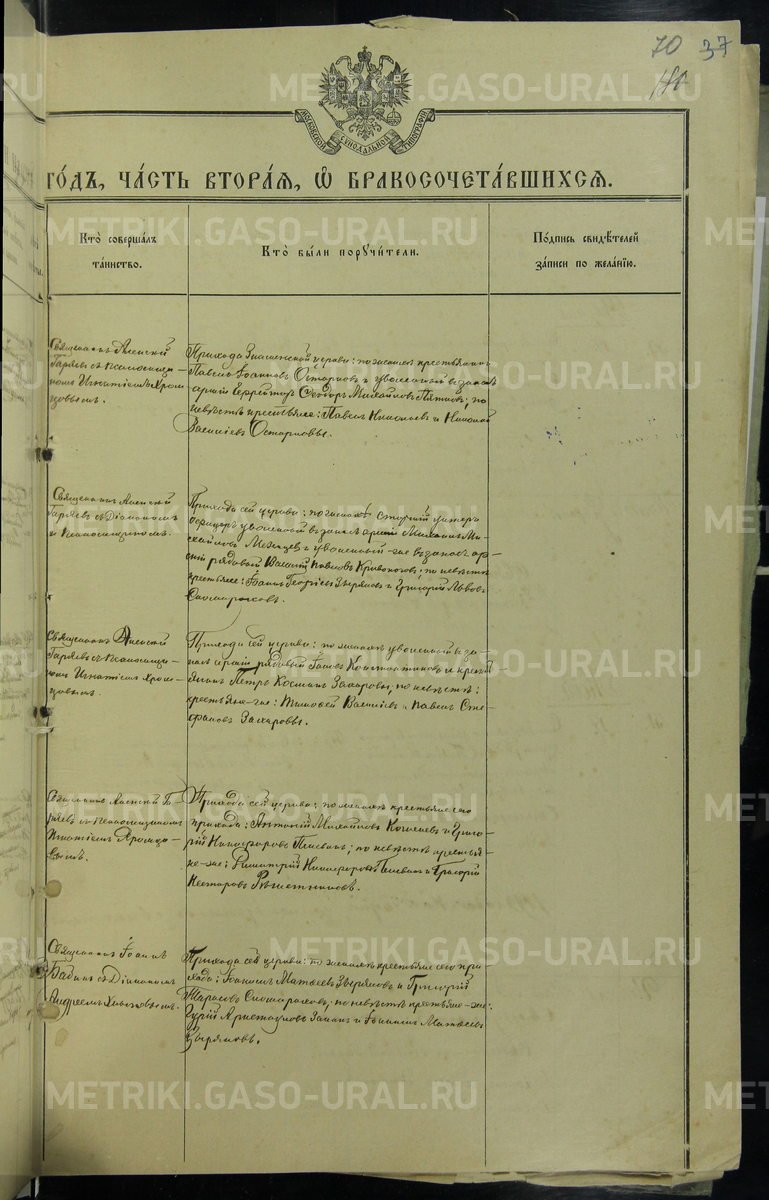 70 37
МОСКОВСКОЙ СѴНОДАЛЬНОЙ ТИПОГРАФІИ
METRIKI.GASO-URAL.RU
го́дъ, ча́сть втора́ѧ, ѡ҆ бракосочета́вшихсѧ.
Кто̀ соверша́лъ
та́инство.
Кто̀ бы́ли поручи́тели.
По́дпись свидѣ́телей
за́писи по жела́нїю.
Священникъ Алексій
Гаряевъ съ псаломщи-
комъ Игнатіемъ Хром-
цовымъ.
Прихода Знаменской церкви: по женихѣ крестьянинъ
Павелъ Іоанновъ и уволенный въ запасъ
арміи Ефрейторъ Ѳеодоръ Михайловъ Пятковъ; по
невѣстѣ крестьяне: Павелъ Николаевъ и Николай
Василіевъ
Священникъ Алексій
Гаряевъ съ Діакономъ
и псаломщикомъ.
Прихода сей церкви: по женихѣ старшій унтеръ
офицеръ уволенный въ запасъ арміи Михаилъ Ми-
хайловъ и уволенный-же въ запасъ ар-
міи рядовой Василій Павловъ Кривоноговъ; по невѣстѣ
крестьяне: Іоаннъ Георгіевъ Зыряновъ и Григорій Львовъ
Скомороховъ.
Священникъ Алексій
Гаряевъ съ псаломщи-
комъ Игнатіемъ Хром-
цовымъ.
Прихода сей церкви: по женихѣ уволенный въ за-
пасъ арміи рядовой Іаковъ и кресть-
янинъ Петръ Космин Захаровы; по невѣстѣ:
крестьяне-же: Тимоѳей Василіевъ и Павелъ Сте-
фановъ Захаровы.
Священникъ Алексій Га-
ряевъ съ псаломщикомъ
Игнатіемъ Хромцо-
вымъ.
Прихода сей церкви: по женихѣ крестьяне сего
прихода: Антоній Михайловъ и Григо-
рій Никифоровъ; по невѣстѣ крестья-
не-же: Димитрій Никифоровъ и Григорій
Несторовъ Рѣшетниковъ.
Священникъ Іоаннъ
Бабинъ съ Діакономъ
Андреемъ
Прихода сей церкви: по женихѣ крестьяне сего при-
хода: Іоаннъ Матѳеевъ Зыряновъ и Григорій
Тарасовъ Скомороховъ; по невѣстѣ крестьяне-же:
Гурій и Іоаннъ Матѳеевъ
Зыряновъ.